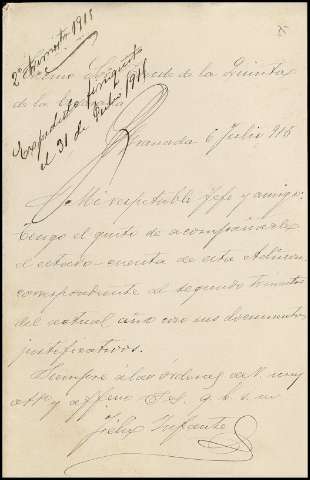 2º trimestre 1915
Expedido finiquito
el 31 de Julio 1916
Excmo Sr Conde de la Quinta
de la
Granada 6 Julio 915
Mi respetable Jefe y amigo:
tengo el gusto de acompañarle
el estado-cuenta de esta
correspondiente al segundo trimestre
del actual año con sus documentos
justificativos.
Siempre á las órdenes de V. muy
atto y affmo S. S. q. b. s. m.
Félix Infante